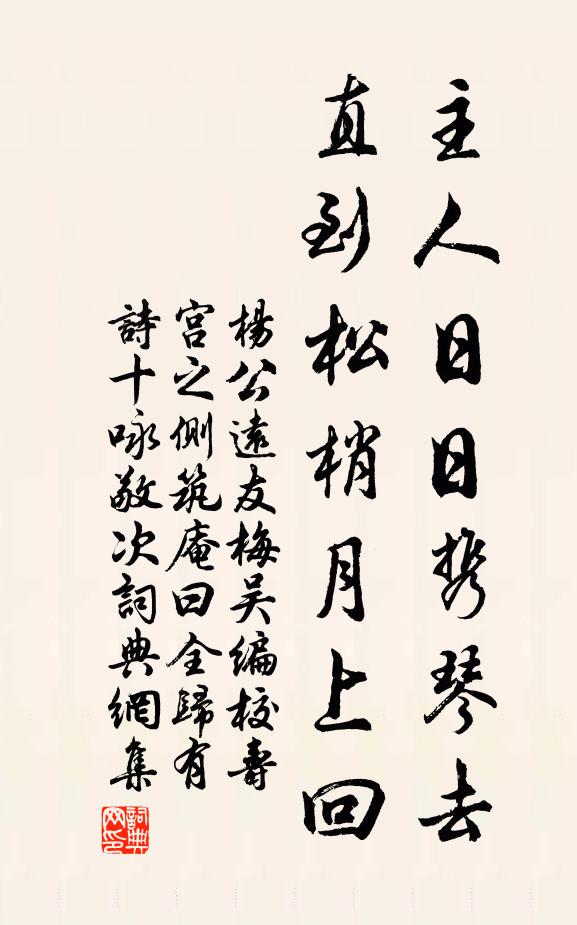 主人日日携琴去
直到松梢月上回
楊公遠友梅吴編校壽
宫之側筑庵曰全歸有
詩十咏敬次詞典網集
詞典
网印